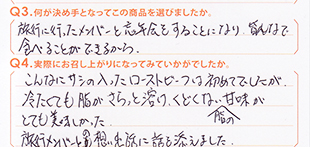 Q3.何が決め手となってこの商品を選びましたか。
旅行に行ったメンバーと忘年会をすることになり 皆んなで
食べることができるから。
Q4.実際にお召し上がりになってみていかがでしたか。
こんなにサシの入ったローストビーフは初めてでしたが
冷たくても脂がさらっと溶け、くどくない脂の甘味が
とても美味しかった
旅行メンバーと 思い出話に話を添えました